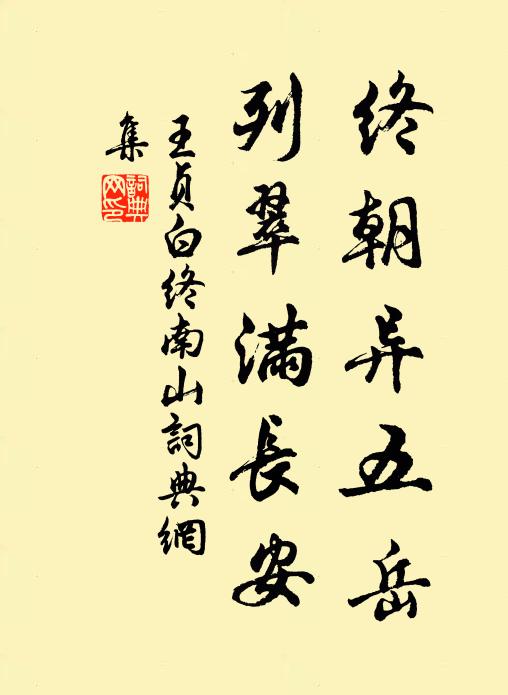 终朝异五岳
列翠满長安
王貞白终南山詞典網
集
詞典
网印